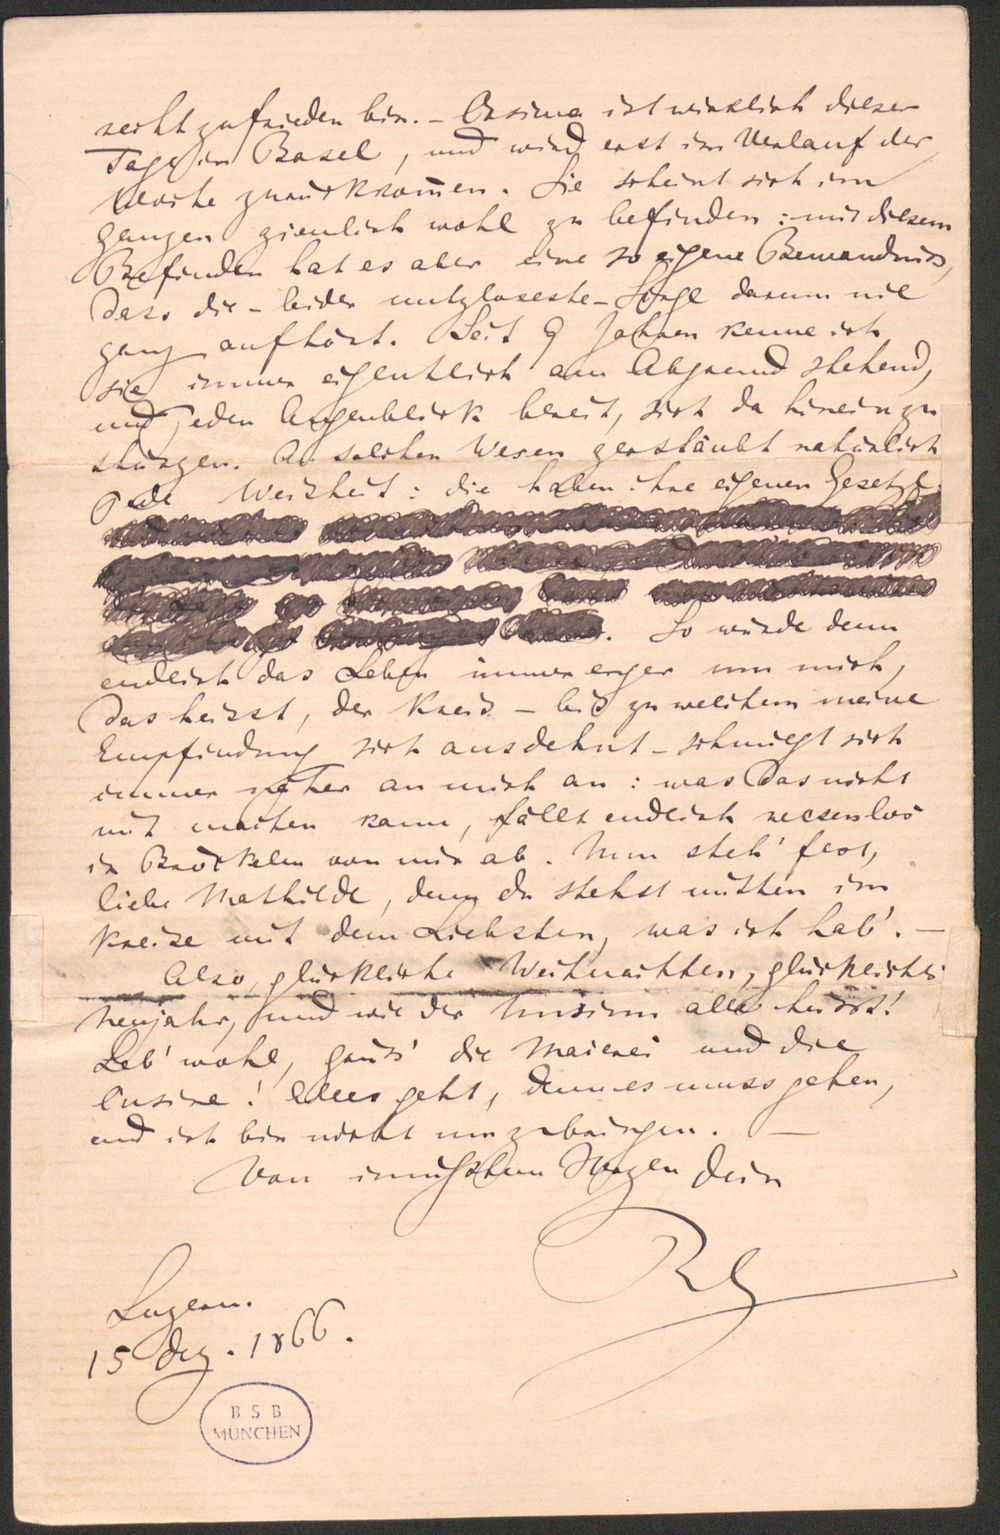 recht zufrieden bin. – Cosima ist wirklich dieser
Tage in Basel, und wird erst im Verlauf der
Woche zurückkommen. Sie scheint sich im
ganzen ziemlich wohl zu befinden: mit diesem
Befinden hat es aber eine so eigene Bewandniss,
dass die – leider nutzloseste – Sorge darum nie
ganz aufhört. Seit 9 Jahren kenne ich
sie immer eigentlich am Abgrund stehend,
und jeden Augenblick bereit, sich da hinein zu
stürzen. An solchen Wesen zerstäubt natürlich
jede Weisheit: die haben ihre eigenen Gesetze.
So würde denn
endlich das Leben immer enger um mich,
das heisst, der Kreis – bis zu welchem meine
Empfindung sich ausdehnt – schmiegt sich
immer näher an mich an: was das nicht
mit machen kann, fällt endlich
in Bröckeln von mir ab. Nun steh' fest,
liebe Mathilde, denn du stehst mitten im
Kreise mit dem Liebsten, was ich hab'. –
Also, glückliche Weihnachten, glückliches
Neujahr, und wie der Unsinn alles heisst!
Leb' wohl, grüss' die Maierei und die
Cusine! Alles geht, denn es muss gehen,
und ich bin nicht umzubringen. –
Von innigstem Herzen Dein
R
Luzern.
15 Dez. 1866.
BSB
MÜNCHEN